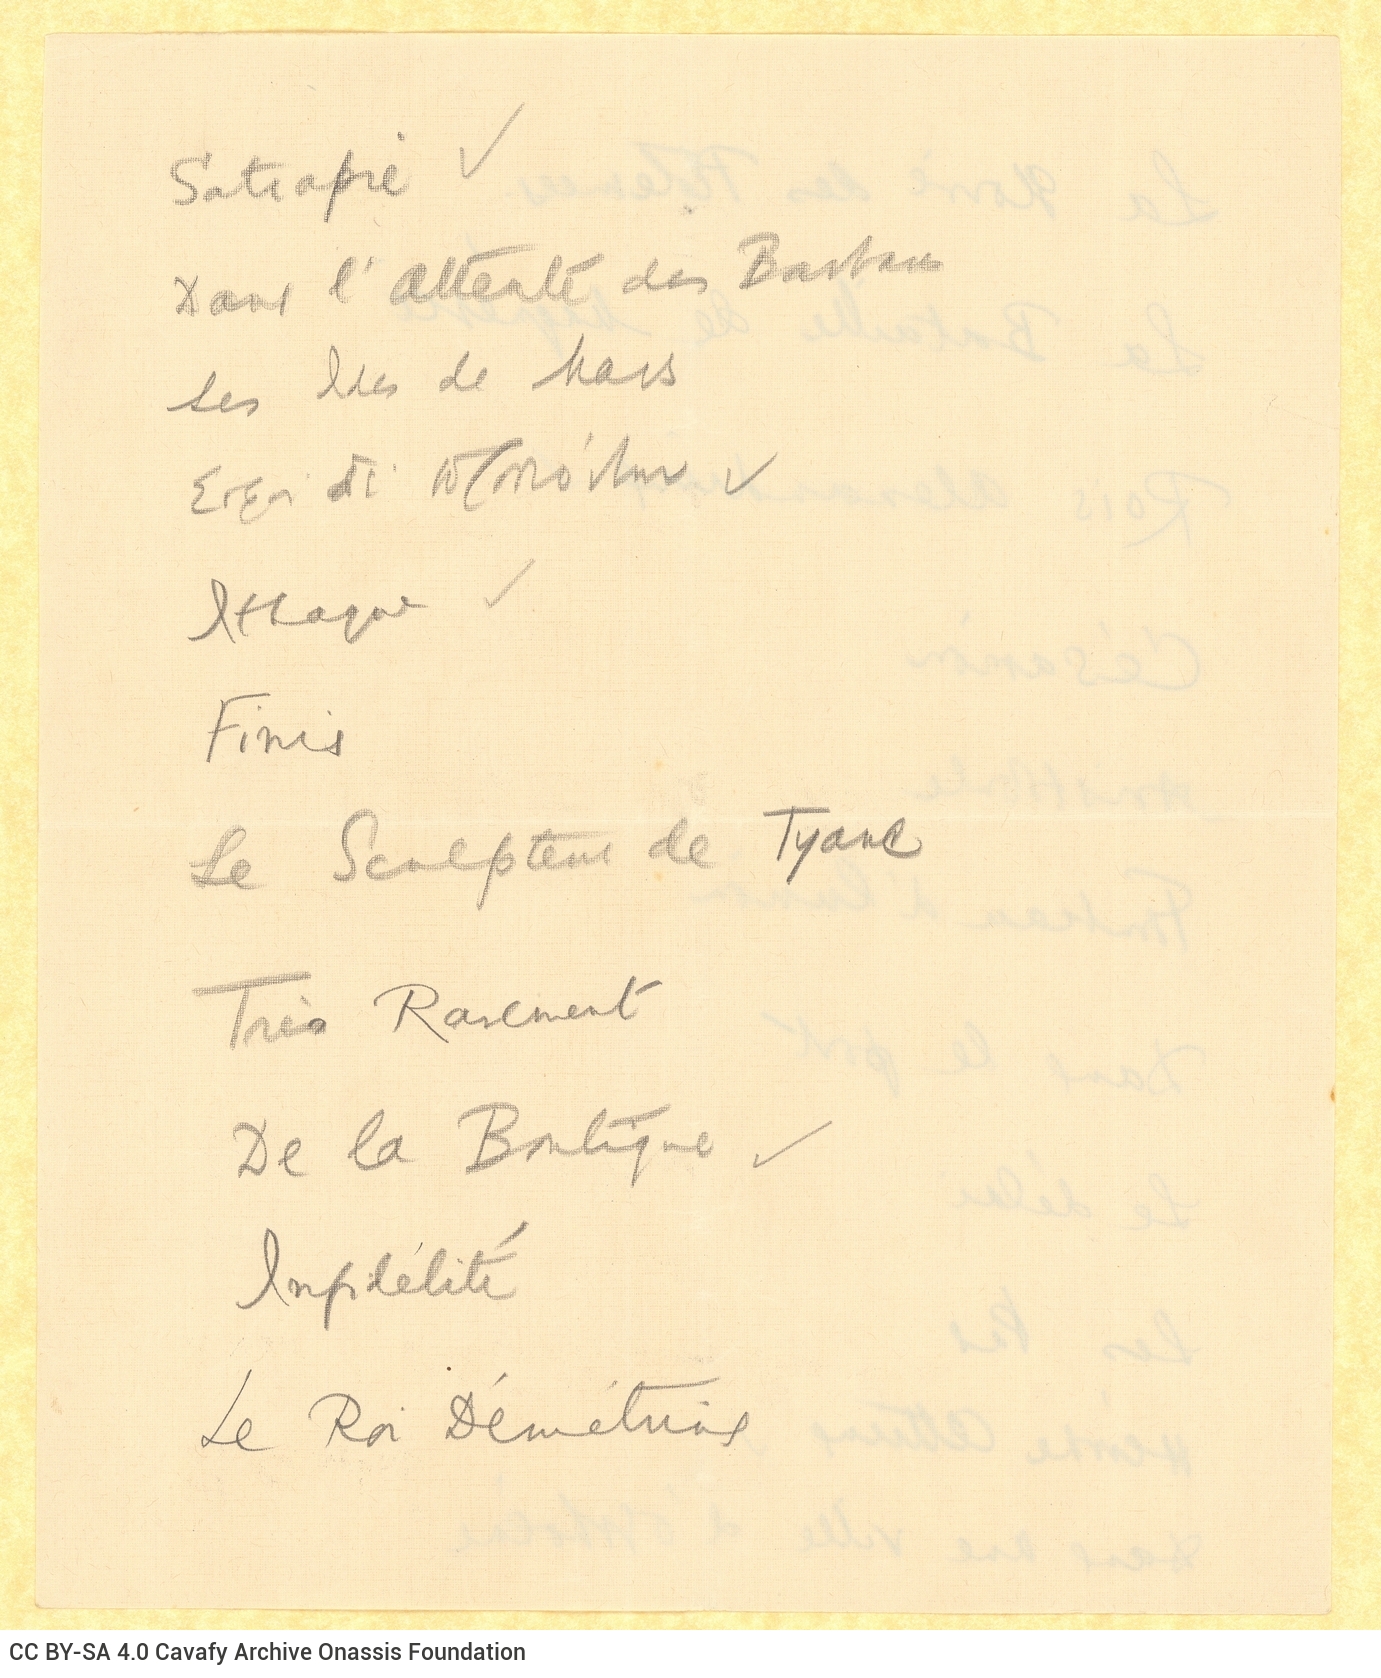 Satrapie ✓
Dans l'attente des Barbares
Les Ides de Mars
Ithaque ✓
Finis
Le Sculpteur de Tyane
Très Rarement
De la Boutique ✓
Infidélité
Le Roi Démétrius
CC BY-SA 4.0 Cavafy Archive Onassis Foundation